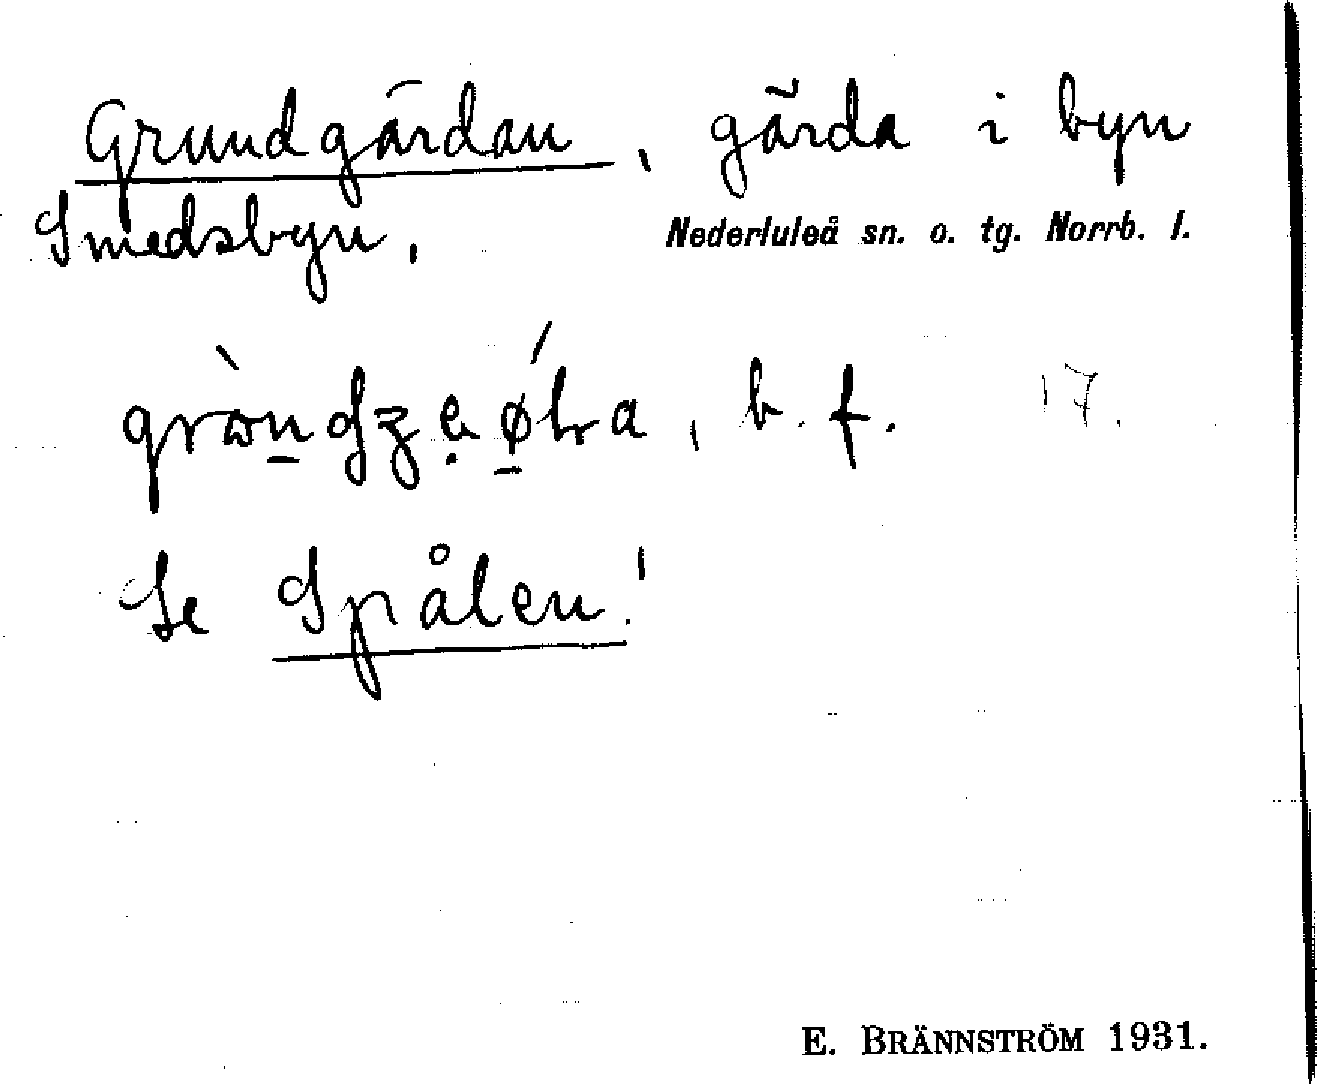 Grundgärdan, gärda i byn
Smedsbyn. Nederluleå sn. o. tg. Norrb. l.
b. f. 17.
Se Spålen!
E. BRÄNNSTRÖM 1931.